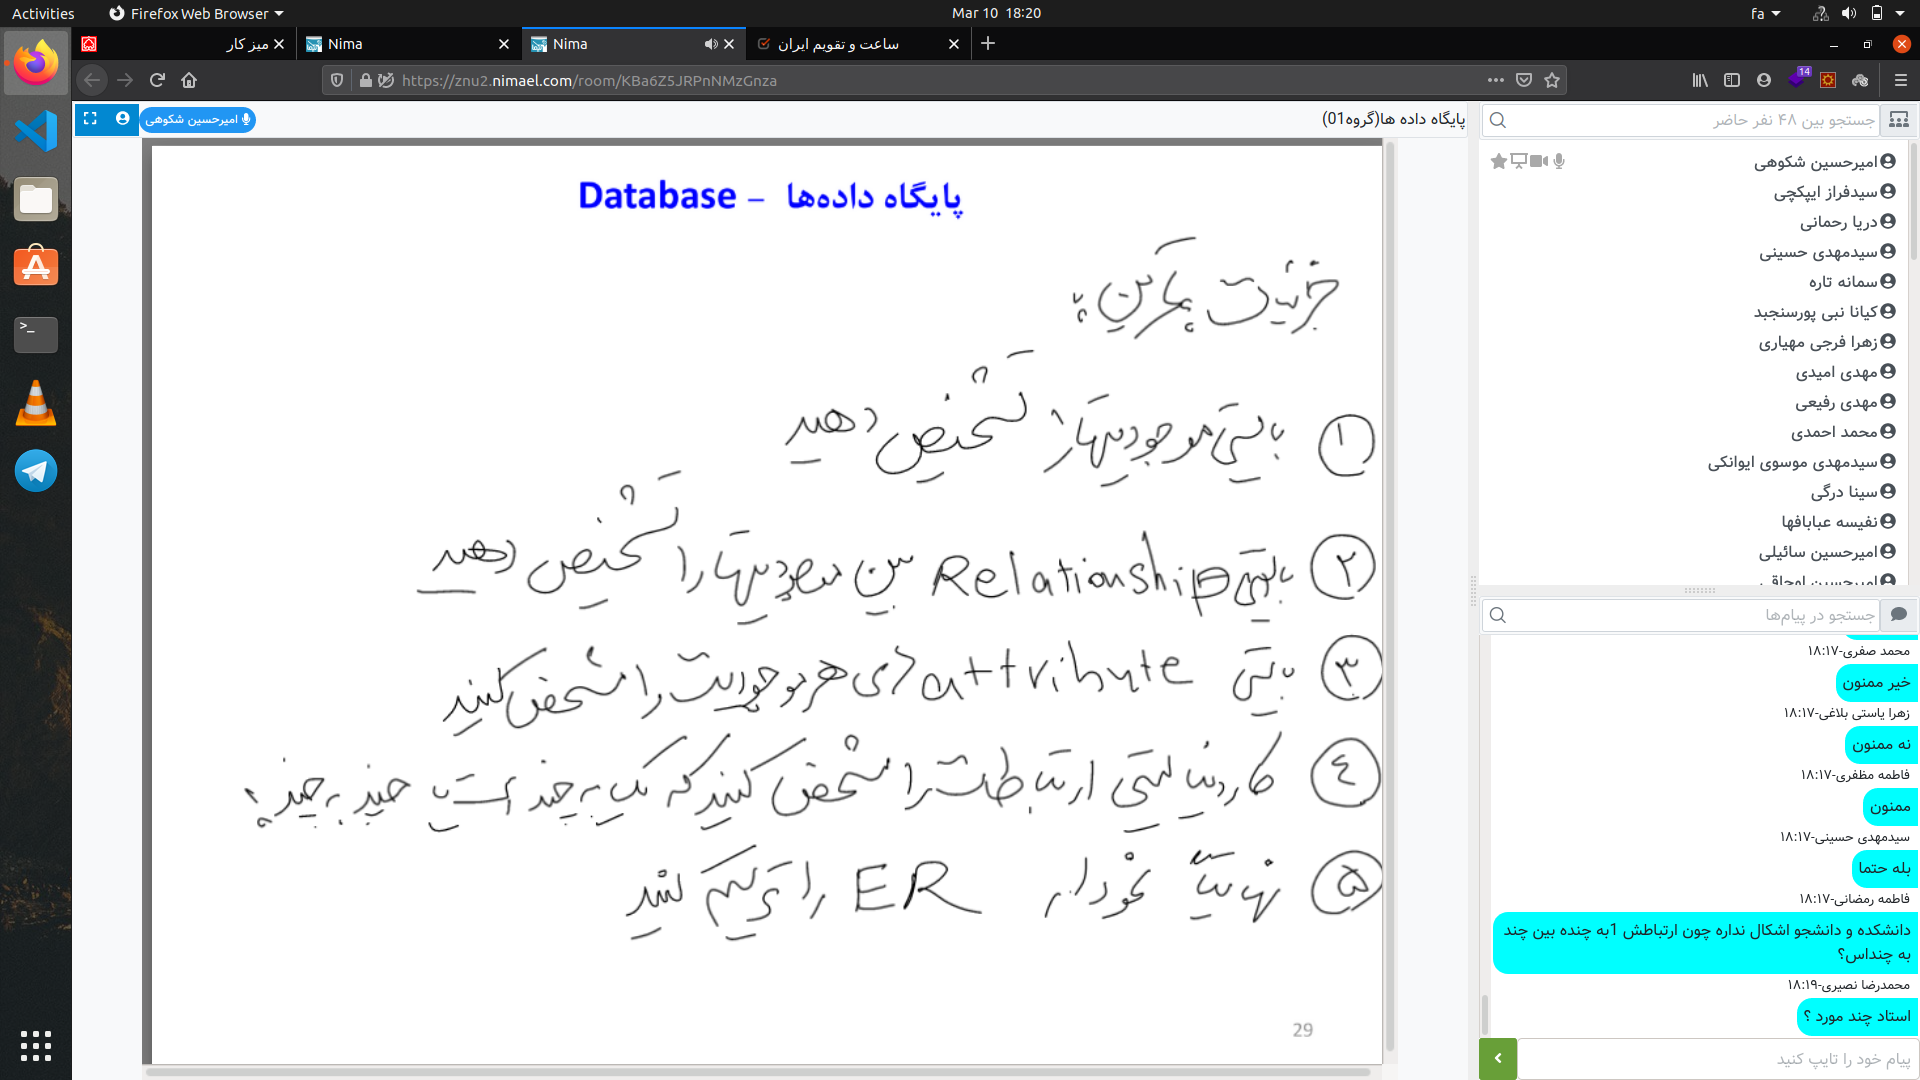 Activities
Firefox Web Browser
Mar 10 18:20
fa
میز کار
Nima
Nima
ساعت و تقویم ایران
https://znu2.nimael.com/room/KBa6Z5JRPnNMzGnza
14
امیرحسین شکوهی
پایگاه داده ها(گروه01)
پایگاه داده‌ها – Database
جزئیت پمکرین :
۱ بایستی موجودیتها را تشخیص دهید
۲ بایستی Relationship بین موجودیتها را تشخیص دهید
۳ بایستی attribute های هر موجودیت را مشخص کنید
۴ کاردینالیتی ارتباطات را مشخص کنید که یک به چند است یا چند به چند؟
۵ نهایتاً نمودار ER را ترسیم کنید
29
جستجو بین ۴۸ نفر حاضر
امیرحسین شکوهی
سیدفراز ایپکچی
دریا رحمانی
سیدمهدی حسینی
سمانه تاره
کیانا نبی پورسنجبد
زهرا فرجی مهیاری
مهدی امیدی
مهدی رفیعی
محمد احمدی
سیدمهدی موسوی ایوانکی
سینا درگی
نفیسه عبابافها
امیرحسین سائیلی
امیرحسین اوجاقی
جستجو در پیام‌ها
محمد صفری-۱۸:۱۷
خیر ممنون
زهرا یاستی بلاغی-۱۸:۱۷
نه ممنون
فاطمه مظفری-۱۸:۱۷
ممنون
سیدمهدی حسینی-۱۸:۱۷
بله حتما
فاطمه رمضانی-۱۸:۱۷
دانشکده و دانشجو اشکال نداره چون ارتباطش 1به چنده بین چند
به چنداس؟
محمدرضا نصیری-۱۸:۱۹
استاد چند مورد ؟
پیام خود را تایپ کنید